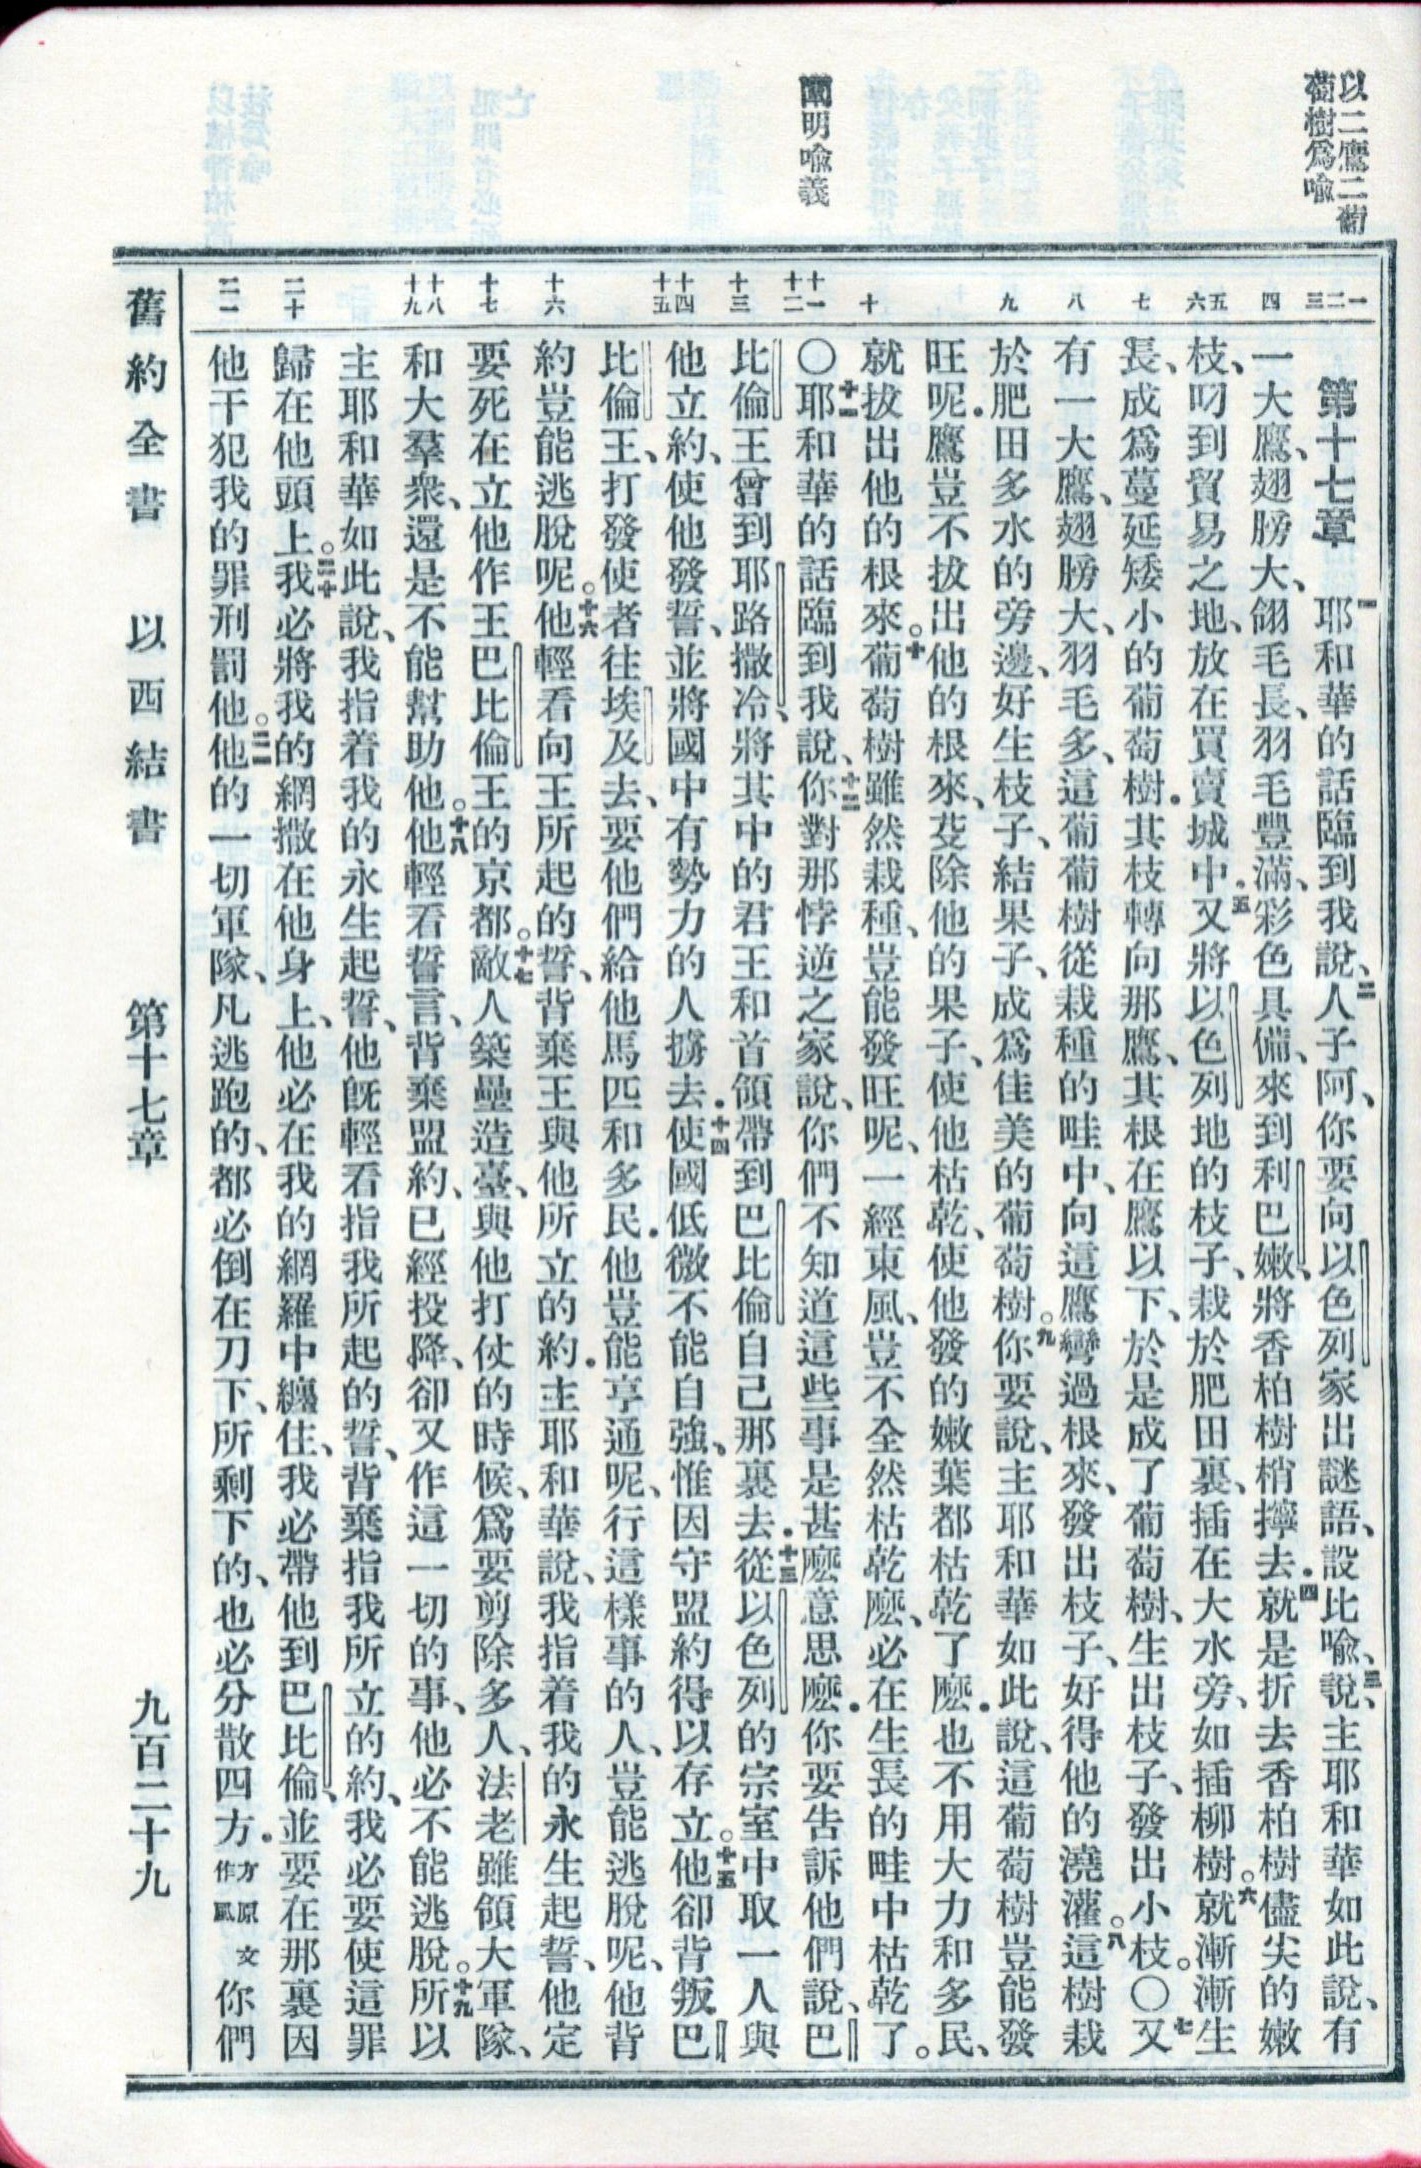 以二鷹二葡
萄樹爲喩
闡明喩義
一
二
三
四
五
六
七
八
九
十
十一
十二
十三
十四
十五
十六
十七
十八
十九
二十
二一
第十七章 一耶和華的話臨到我說、二人子阿、你要向以色列家出謎語、設比喩、三說、主耶和華如此說、有
一大鷹、翅膀大、翎毛長、羽毛豐滿、彩色具備、來到利巴嫩、將香柏樹梢擰去.四就是折去香柏樹儘尖的嫩
枝、叼到貿易之地、放在買賣城中.五又將以色列地的枝子、栽於肥田裏、插在大水旁、如插柳樹。六就漸漸生
長、成爲蔓延矮小的葡萄樹.其枝轉向那鷹、其根在鷹以下、於是成了葡萄樹、生出枝子、發出小枝。〇七又
有一大鷹、翅膀大、羽毛多、這葡葡樹從栽種的畦中、向這鷹彎過根來、發出枝子、好得他的澆灌。八這樹栽
於肥田多水的旁邊、好生枝子、結果子、成爲佳美的葡萄樹。九你要說、主耶和華如此說、這葡萄樹豈能發
旺呢.鷹豈不拔出他的根來、芟除他的果子、使他枯乾、使他發的嫩葉都枯乾了麽.也不用大力和多民、
就拔出他的根來。十葡萄樹雖然栽種、豈能發旺呢、一經東風、豈不全然枯乾麽、必在生長的畦中枯乾了。
〇十一耶和華的話臨到我說、十二你對那悖逆之家說、你們不知道這些事是甚麽意思麽.你要告訴他們說、巴
比倫王曾到耶路撒冷、將其中的君王和首領帶到巴比倫自己那裏去.十三從以色列的宗室中取一人與
他立約、使他發誓、並將國中有勢力的人擄去.十四使國低微不能自強、惟因守盟約得以存立。十五他卻背叛巴
比倫王、打發使者往埃及去、要他們給他馬匹和多民.他豈能亨通呢、行這樣事的人、豈能逃脫呢、他背
約豈能逃脫呢。十六他輕看向王所起的誓、背棄王與他所立的約.主耶和華說、我指着我的永生起誓、他定
要死在立他作王巴比倫王的京都。十七敵人築壘造臺、與他打仗的時候、爲要剪除多人、法老雖領大軍隊、
和大羣衆、還是不能幫助他。十八他輕看誓言、背棄盟約、已經投降、卻又作這一切的事、他必不能逃脫。十九所以
主耶和華如此說、我指着我的永生起誓、他旣輕看指我所起的誓、背棄指我所立的約、我必要使這罪
歸在他頭上。二十我必將我的網撒在他身上、他必在我的網羅中纏住、我必帶他到巴比倫、並要在那裏因
他干犯我的罪刑罰他。二一他的一切軍隊、凡逃跑的、都必倒在刀下、所剩下的、也必分散四方.方原文作風你們
舊約全書 以西結書 第十七章 九百二十九